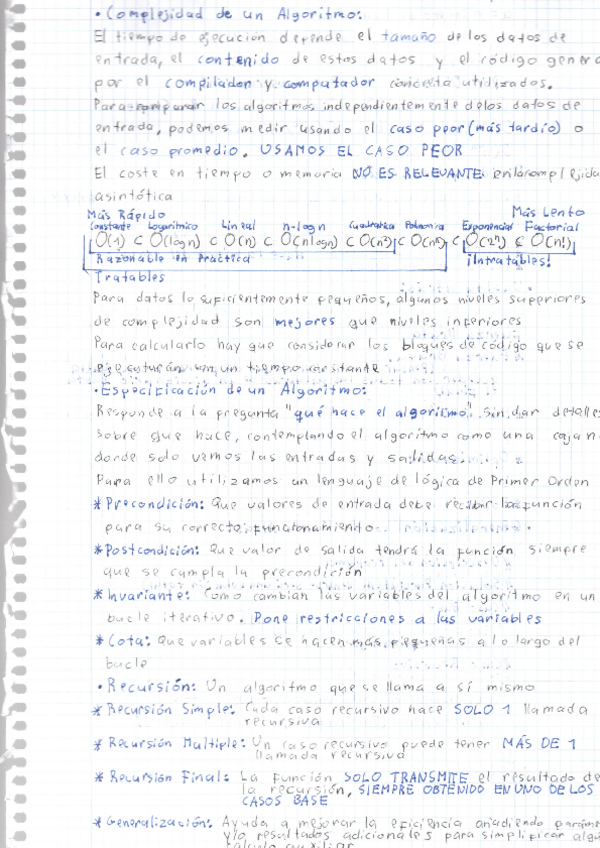 • Complejidad de un Algoritmo:
El tiempo de ejecución depende el tamaño de los datos de
entrada, el contenido de estos datos y el código genera
por el compilador y computador concreta utilizados.
Para comparar los algoritmos independientemente de los datos de
entrada, podemos medir usando el caso peor (más tardío) o
el caso promedio. USAMOS EL CASO PEOR
El coste en tiempo o memoria NO ES RELEVANTE en la complejida
asintótica
Más Rápido Más Lento
Constante Logarítmico Lineal n-logn Cuadratica Polinomia Exponencial Factorial
O(1) ⊂ O(logn) ⊂ O(n) ⊂ O(nlogn) ⊂ O(n²) ⊂ O(nᵏ) ⊂ O(2ⁿ) ⊂ O(n!)
Razonable en Practica ¡Intratables!
Tratables
Para datos lo suficientemente pequeños, algunos niveles superiores
de complejidad son mejores que niveles inferiores
Para calcularlo hay que considerar los bloques de código que se
ejecutarán en un tiempo constante
• Especificación de un Algoritmo:
Responde a la pregunta "qué hace el algoritmo" sin dar detalles
sobre que hace, contemplando el algoritmo como una caja n
donde solo vemos las entradas y salidas.
Para ello utilizamos un lenguaje de lógica de Primer Orden
* Precondición: Que valores de entrada debe recibir la función
para su correcto funcionamiento
* Postcondición: Que valor de salida tendrá la función siempre
que se cumpla la precondición
* Invariante: Como cambian las variables del algoritmo en un
bucle iterativo. Pone restricciones a las variables
* Cota: Que variables se hacen más pequeñas a lo largo del
bucle
• Recursión: Un algoritmo que se llama a sí mismo
* Recursión Simple: Cada caso recursivo hace SOLO 1 llamada
recursiva
* Recursión Multiple: Un caso recursivo puede tener MÁS DE 1
llamada recursiva
* Recursión Final: La función SOLO TRANSMITE el resultado de
la recursión, SIEMPRE OBTENIDO EN UNO DE LOS
CASOS BASE
* Generalización: Ayuda a mejorar la eficiencia añadiendo paráme
y/o resultados adicionales para simplificar algú
cálculo auxiliar